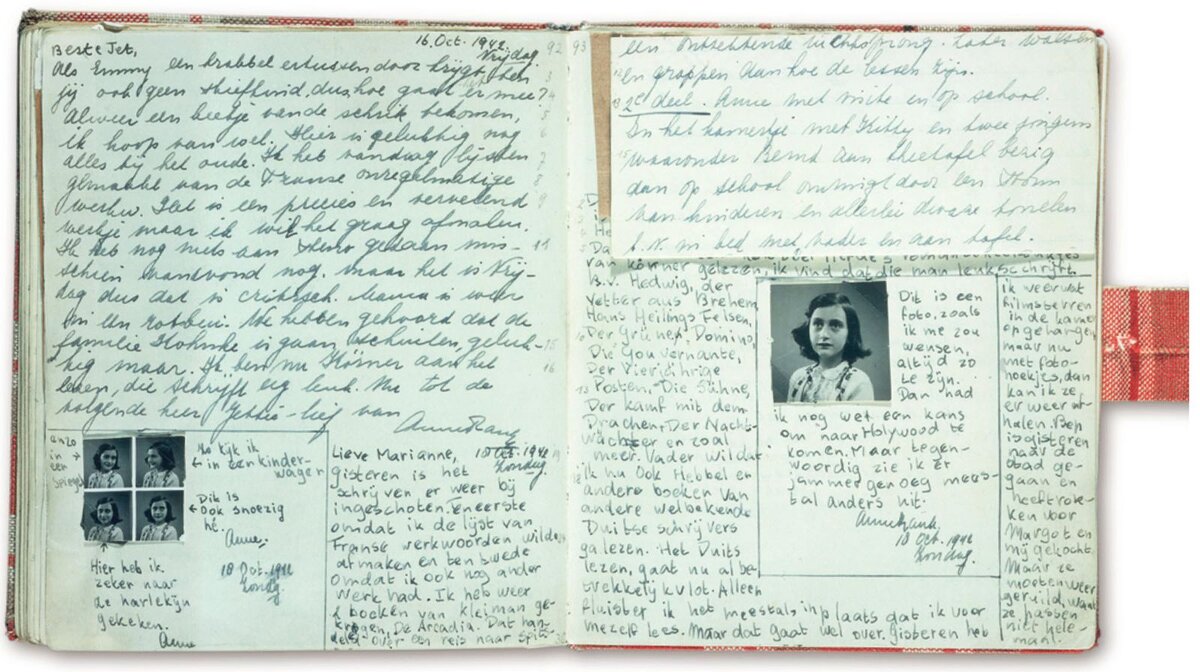 16 Oct. 1942.
Vrijdag.
92
Beste Jet,
Als Emmy een krabbel ertussen door krijgt, ben
jij ook geen stiefkind, dus hoe gaat er mee?
Alweer een beetje van de schrik bekomen,
ik hoop van wel. Hier is gelukkig nog
alles bij het oude. Ik heb vandaag lijsten
gemaakt van de Franse onregelmatige
werkw. Dat is een precies en vervelend
werkje maar ik wil het graag afmaken.
Ik heb nog niets aan steno gedaan mis-
schien vanavond nog. maar het is Vrij-
dag dus dat is critisch. Mama is weer
We hebben gehoord dat de
familie is gaan schuilen, geluk-
kig maar. Ik ben nu Körner aan het
lezen, die schrijft erg leuk. Nu tot de
volgende keer Jettie-lief van
Anne Frank
anzo
in
een
spiegel
Ho kijk ik
in een kinder-
wagen
Dit is
ook snoezig
hè.
Anne.
Hier heb ik
zeker naar
de harlekijn
gekeken.
Anne
18 Oct. 1942
Zondag.
Lieve Marianne,
18 Oct. 1942
Zondag.
gisteren is het
schrijven er weer bij
ingeschoten. Eneerste
omdat ik de lijst van
Franse werkwoorden wilde
afmaken en ten twede
omdat ik ook nog ander
werk had. Ik heb weer
2 boeken van kleiman ge-
kregen, De Arcadia. Dat han-
delt over een reis naar Spits-
93
een ontzettende luchtsprong. Later walsen
en grappen aan hoe de lessen zijn.
2e deel. Anne met visite en op school.
In het kamertje met Kitty en twee jongens
waaronder Bernd aan theetafel bezig
dan op school omringt door een stroom
van kinderen en allerlei dwaze tonelen
b.v. in bed met vader en aan tafel.
van körner gelezen, ik vind dat die man leuk schrijft.
B.v. Hedwig, der
Vetter aus Bremen,
Hans Heilings Felsen,
Der Grüne Domino,
Die Gouvernante,
Der Vierjährige
Posten, Die Sühne,
Der kampf mit dem
Drachen, Der Nacht-
wächter en zoal
meer. Vader wil dat
ik nu ook Hebbel en
andere boeken van
andere welbekende
Duitse schrijvers
ga lezen. Het Duits
lezen, gaat nu al be-
trekkelijk vlot. Alleen
fluister ik het meestal, in plaats dat ik voor
mezelf lees. Maar dat gaat wel over. gisteren heb
Dit is een
foto, zoals
ik me zou
wensen,
altijd zo
te zijn.
Dan had
ik nog wel een kans
om naar Holywood te
komen. Maar tegen-
woordig zie ik er
jammer genoeg mees-
tal anders uit.
Anne Frank.
18 Oct. 1942
Zondag.
ik weer wat
filmsterren
in de kamer
opgehangen
maar nu
met foto-
hoekjes, dan
kan ik ze
er weer af-
halen. Bep
is gisteren
naar de
stad ge-
gaan en
heeft rok-
ken voor
Margot en
mij gekocht.
Maar ze
moeten weer
geruild, want
ze passen
niet hele-
maal.